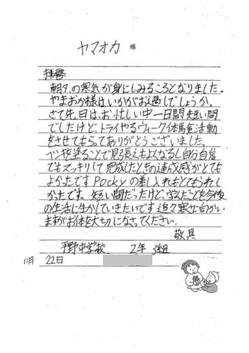 ヤマオカ 様
拝啓
朝夕の寒気が身にしみるころとなりました。
やまおか様はいかがお過しでしょうか。
さて先日は、お忙しい中一日間短い間
でしたけど、トライやるウィーク体験活動
をさせてもらってありがとうございました。
ペンキ塗ることで見張えもよくなるし自分自信
でもスッキリして完成したときの達成感がとても
よかったですPockyの差し入れもとてもうれし
かったです。短い間だったけど、学んだことを今後
の生活に生かしていきたいです追々寒さ向かい
ますがお体を大切になさってください。
敬具
中学校 2年 組
11月 22日